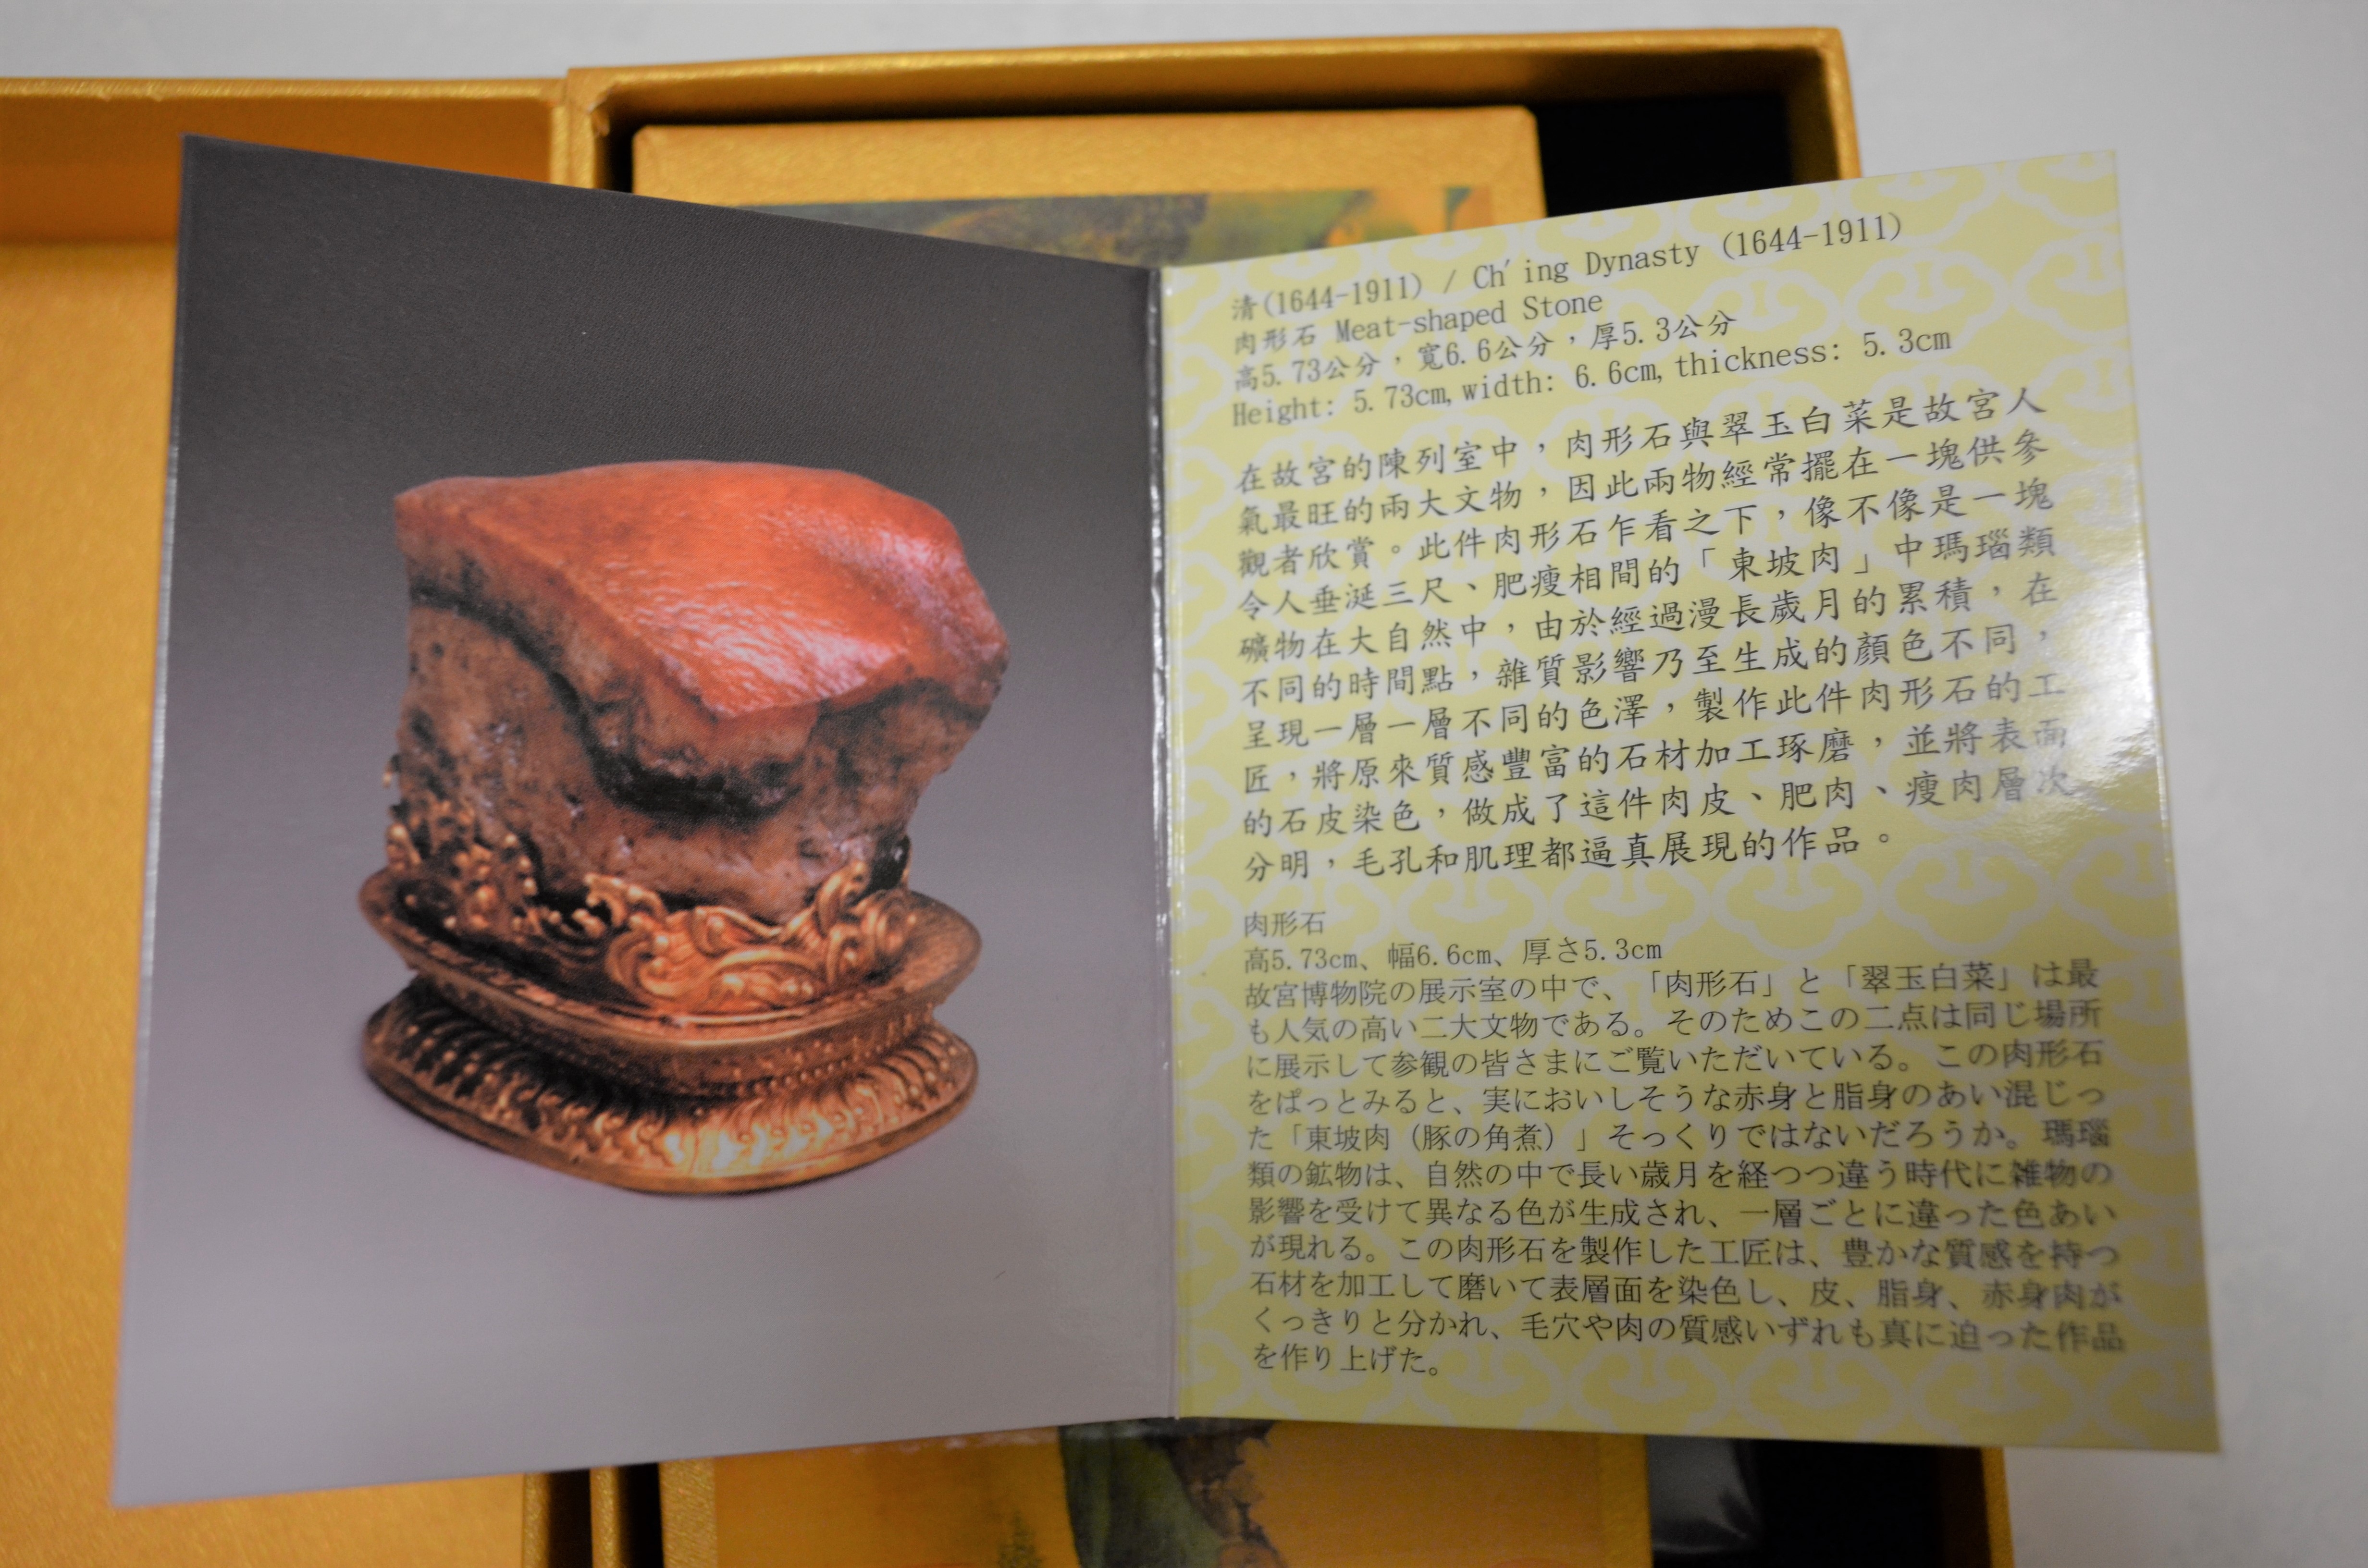 清(1644-1911) / Ch'ing Dynasty (1644-1911)
肉形石 Meat-shaped Stone
高5.73公分，寬6.6公分，厚5.3公分
Height: 5.73cm, width: 6.6cm, thickness: 5.3cm
在故宮的陳列室中，肉形石與翠玉白菜是故宮人
氣最旺的兩大文物，因此兩物經常擺在一塊供參
觀者欣賞。此件肉形石乍看之下，像不像是一塊
令人垂涎三尺、肥瘦相間的「東坡肉」中瑪瑙類
礦物在大自然中，由於經過漫長歲月的累積，在
不同的時間點，雜質影響乃至生成的顏色不同，
呈現一層一層不同的色澤，製作此件肉形石的工
匠，將原來質感豐富的石材加工琢磨，並將表面
的石皮染色，做成了這件肉皮、肥肉、瘦肉層次
分明，毛孔和肌理都逼真展現的作品。
肉形石
高5.73cm、幅6.6cm、厚さ5.3cm
故宮博物院の展示室の中で、「肉形石」と「翠玉白菜」は最
も人気の高い二大文物である。そのためこの二点は同じ場所
に展示して参観の皆さまにご覧いただいている。この肉形石
をぱっとみると、実においしそうな赤身と脂身のあい混じっ
た「東坡肉（豚の角煮）」そっくりではないだろうか。瑪瑙
類の鉱物は、自然の中で長い歳月を経つつ違う時代に雑物の
影響を受けて異なる色が生成され、一層ごとに違った色あい
が現れる。この肉形石を製作した工匠は、豊かな質感を持つ
石材を加工して磨いて表層面を染色し、皮、脂身、赤身肉が
くっきりと分かれ、毛穴や肉の質感いずれも真に迫った作品
を作り上げた。